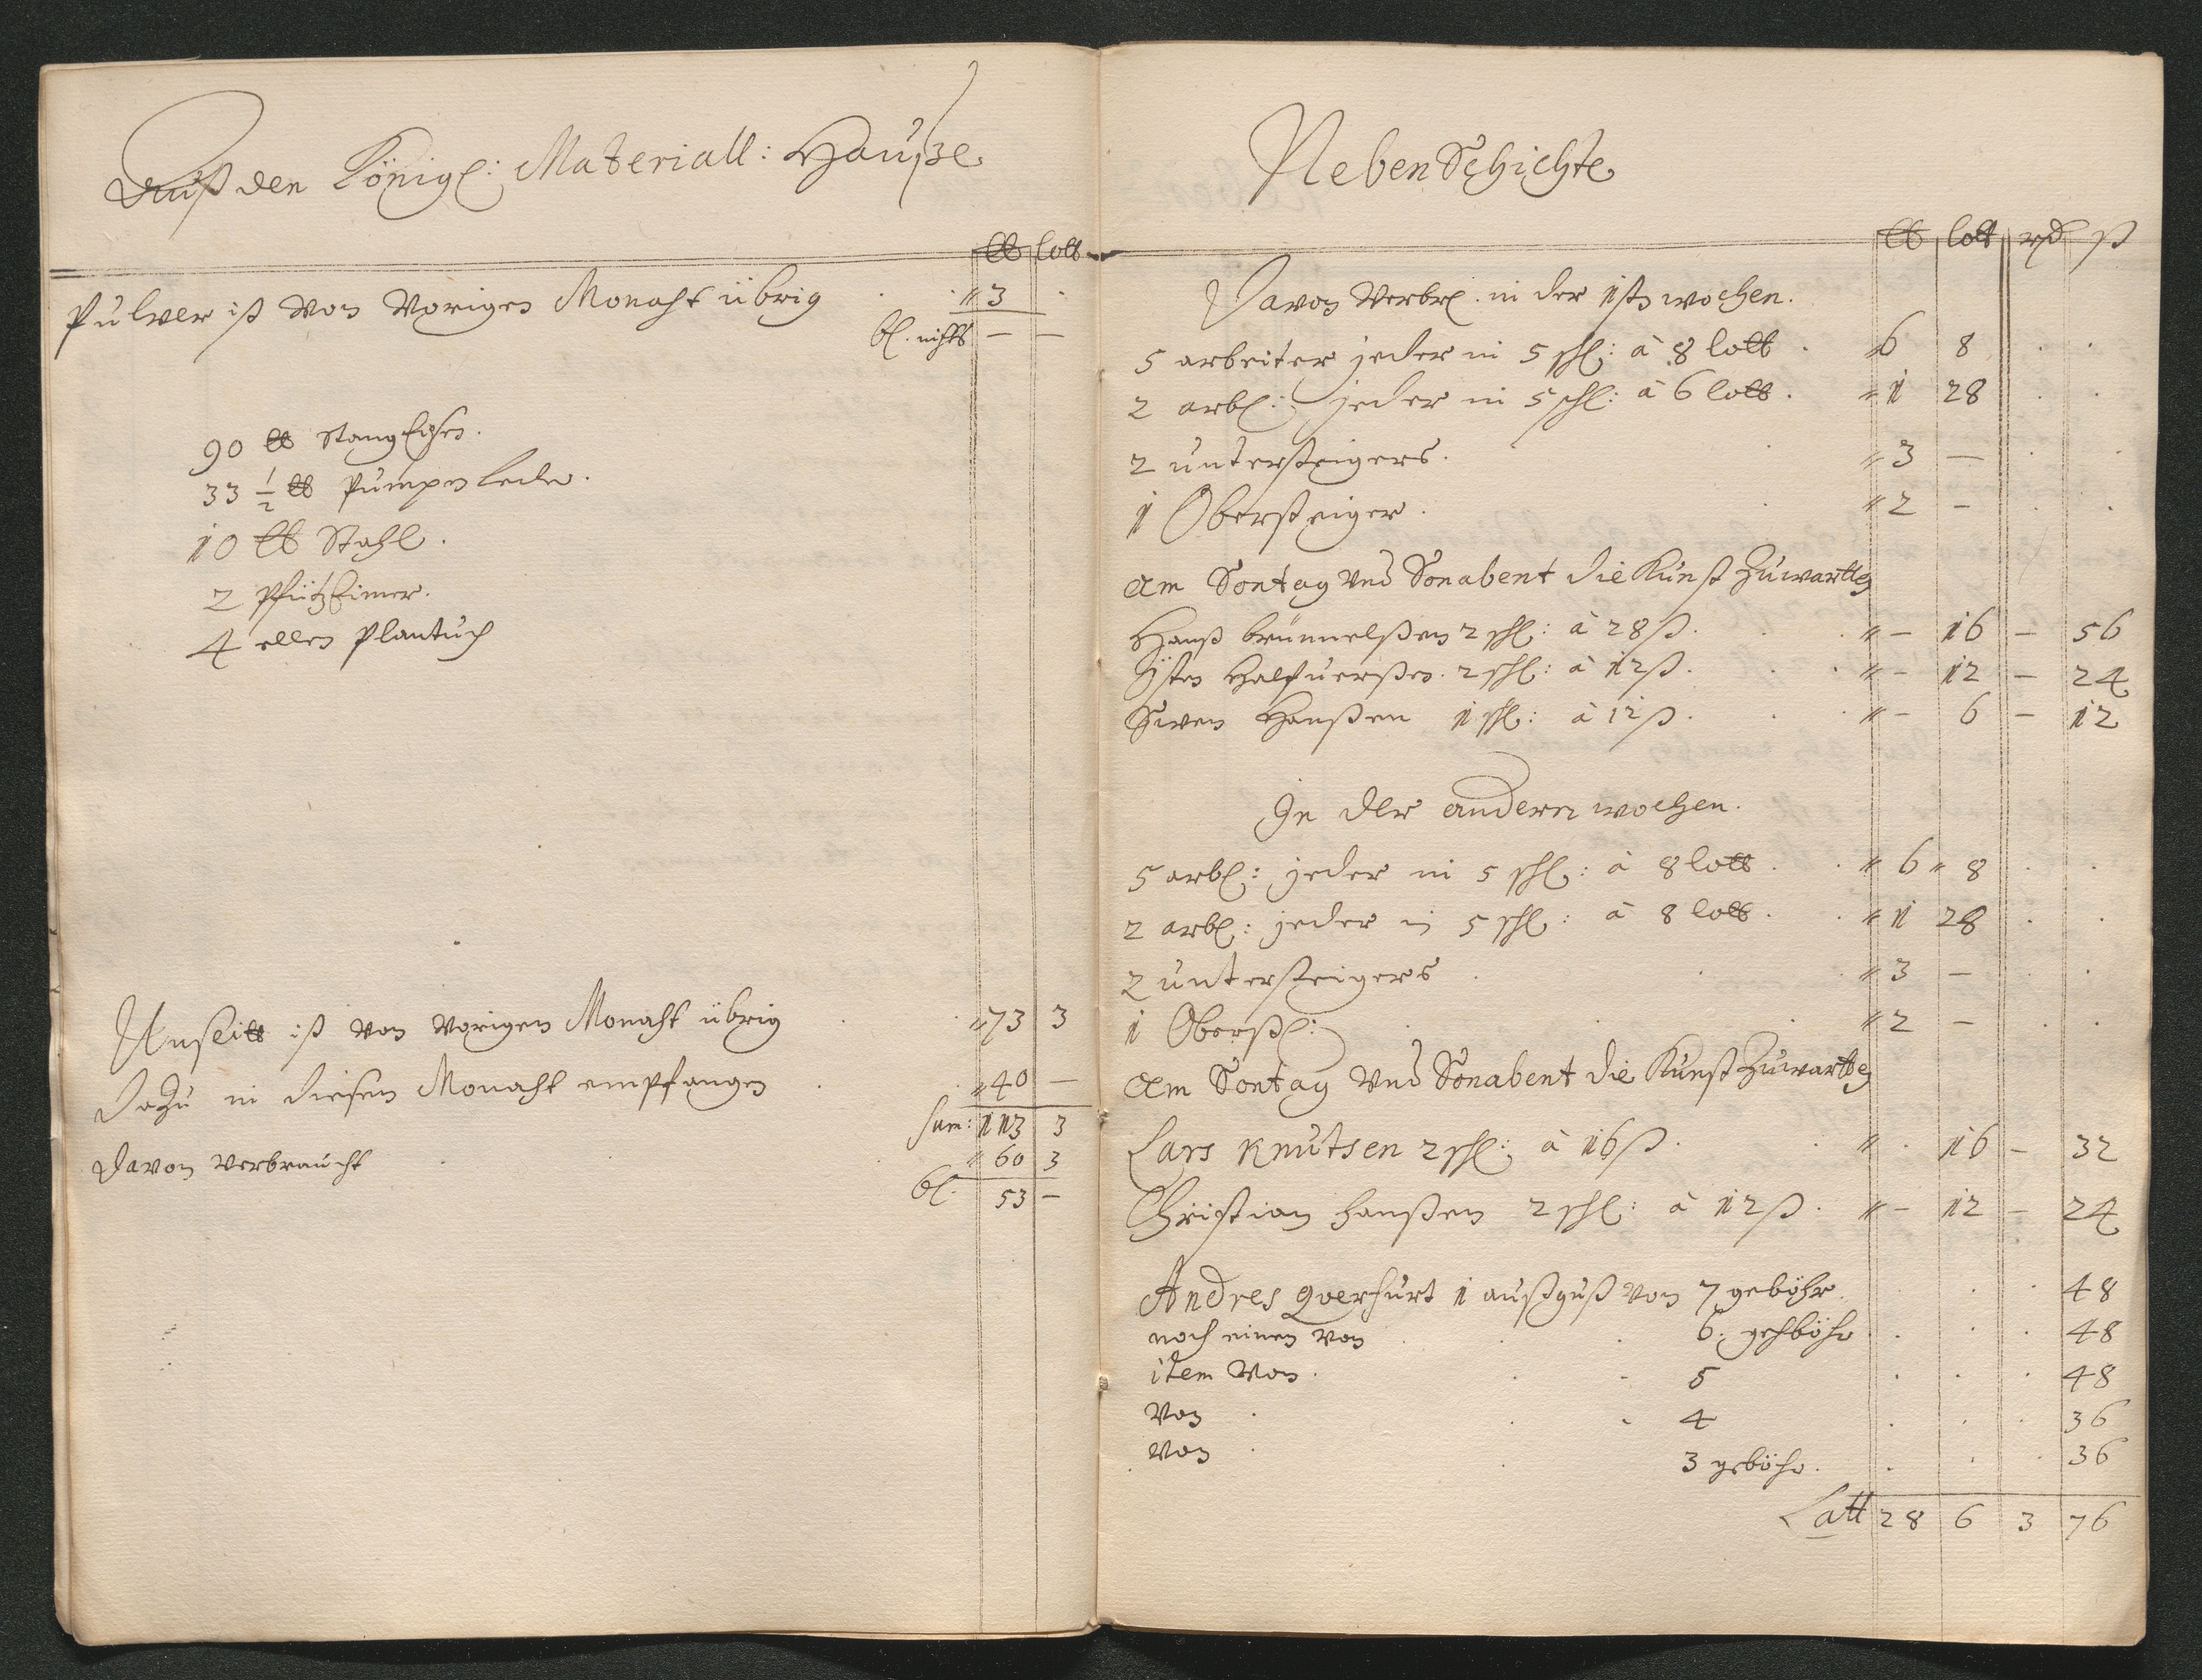 Auß den Königl: Materiall: Hauße
℔ lott
Pulver ist von vorigen Monaht übrig . . " 3 .
bl. nichts — —
90 ℔ StangEisen.
33 ½ ℔ Pumpen Leder.
10 ℔ Stahl.
2 PfützEimer.
4 ellen Plantuch
Unslitt ist von vorigen Monaht übrig . . " 73 3
Dazu in diesen Monaht empfangen . . " 40 —
sum: 113 3
Davon verbraucht . . " 60 3
bl. 53 —
Neben Schichte
℔ lott rd ß
Davon verbr. in der 1sten wochen.
5 arbeiter jeder in 5 schl: à 8 lott . " 6 8 . .
2 arbl: jeder in 5 schl: à 6 lott . " 1 28 . .
2 untersteigers . . " 3 — . .
1 Obersteiger . . " 2 — . .
am Sontag und Sonabent die Kunst Zuwartten
Hanß brünnelßen 2 schl: à 28 ß . . " — 16 — 56
Östen Halfuerßen. 2 schl: à 12 ß . . " — 12 — 24
Swen Hanßen 1 schl: à 12 ß . . " — 6 — 12
In der andern wochen.
5 arbl: jeder in 5 schl: à 8 lott . . " 6 " 8 . .
2 arbl: jeder in 5 schl: à 8 lott . . " 1 28 . .
2 untersteigers . . " 3 — . .
1 Oberst: . . " 2 — . .
am Sontag und Sonabent die Kunst Zuwartten
Lars Knutsen 2 schl: à 16 ß . . " . 16 — 32
Christian Hanßen 2 schl: à 12 ß . " — 12 — 24
Andres Querfurt 1 außguß von 7 geböhr . . 48
noch einen von . . 6. gehböhr . . . 48
item von . . . 5 . . . 48
von . . . 4 . . . 36
von . . 3 geböhr . . . . 36
Latt 28 6 3 76